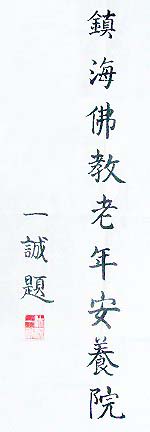 鎮海佛教老年安養院
一誠題